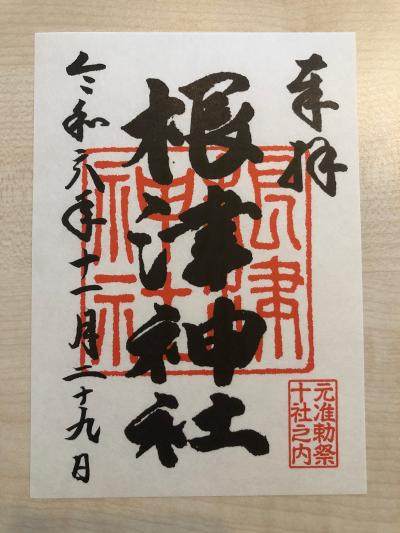 奉拝
根津神社
令和六年十一月二十九日
根津
神社
元准勅祭
十社之内